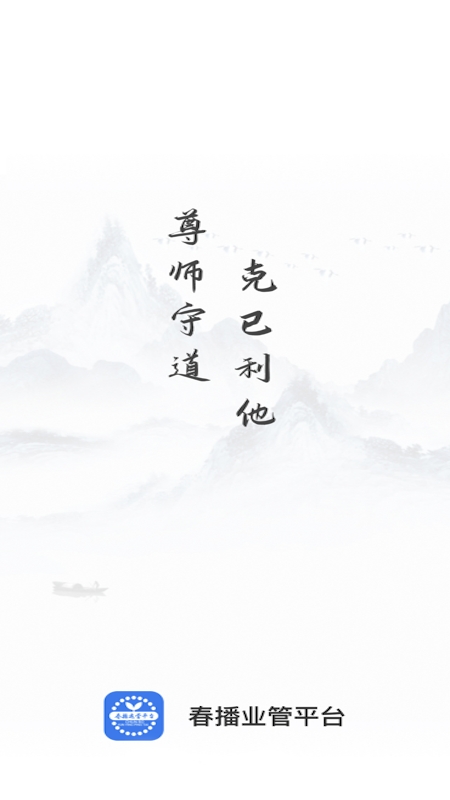 尊师守道
克已利他
春播业管平台
春播业管平台